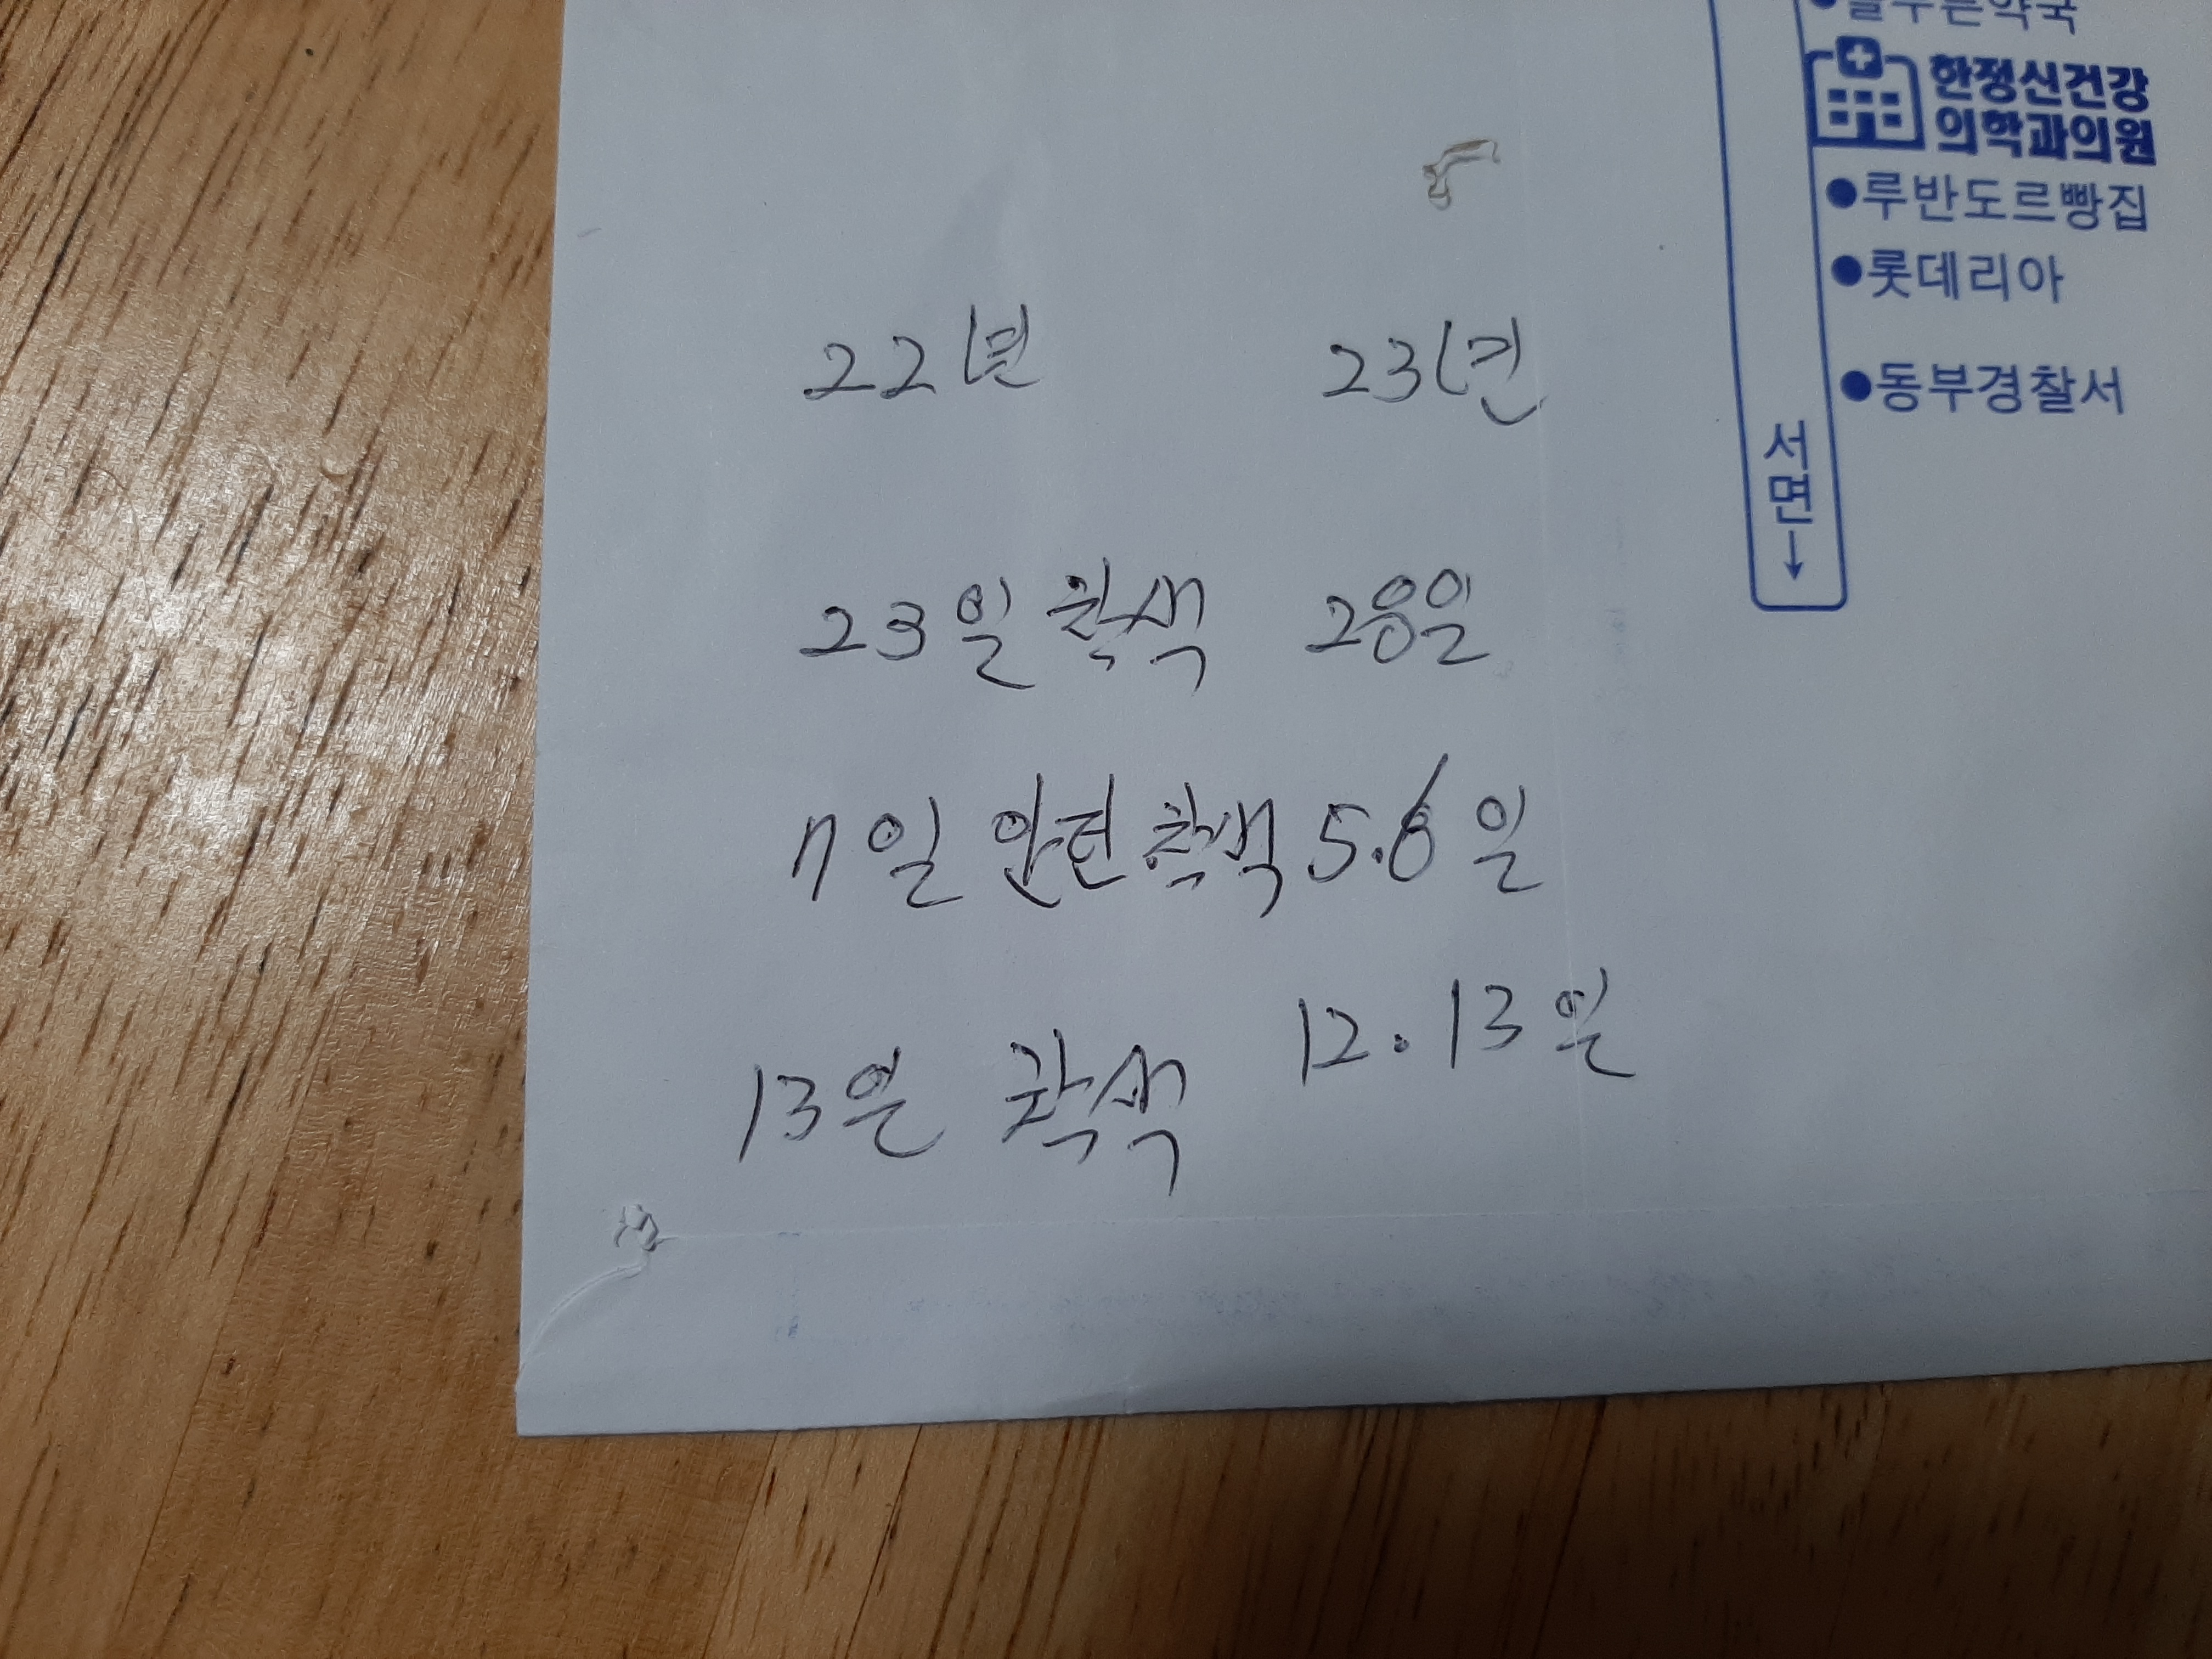 한정신건강
의학과의원
루반도르빵집
롯데리아
동부경찰서
서면↓
22년 23년
23일 착색 28일
7일 안면착색 5.6일
13일 착색 12.13일